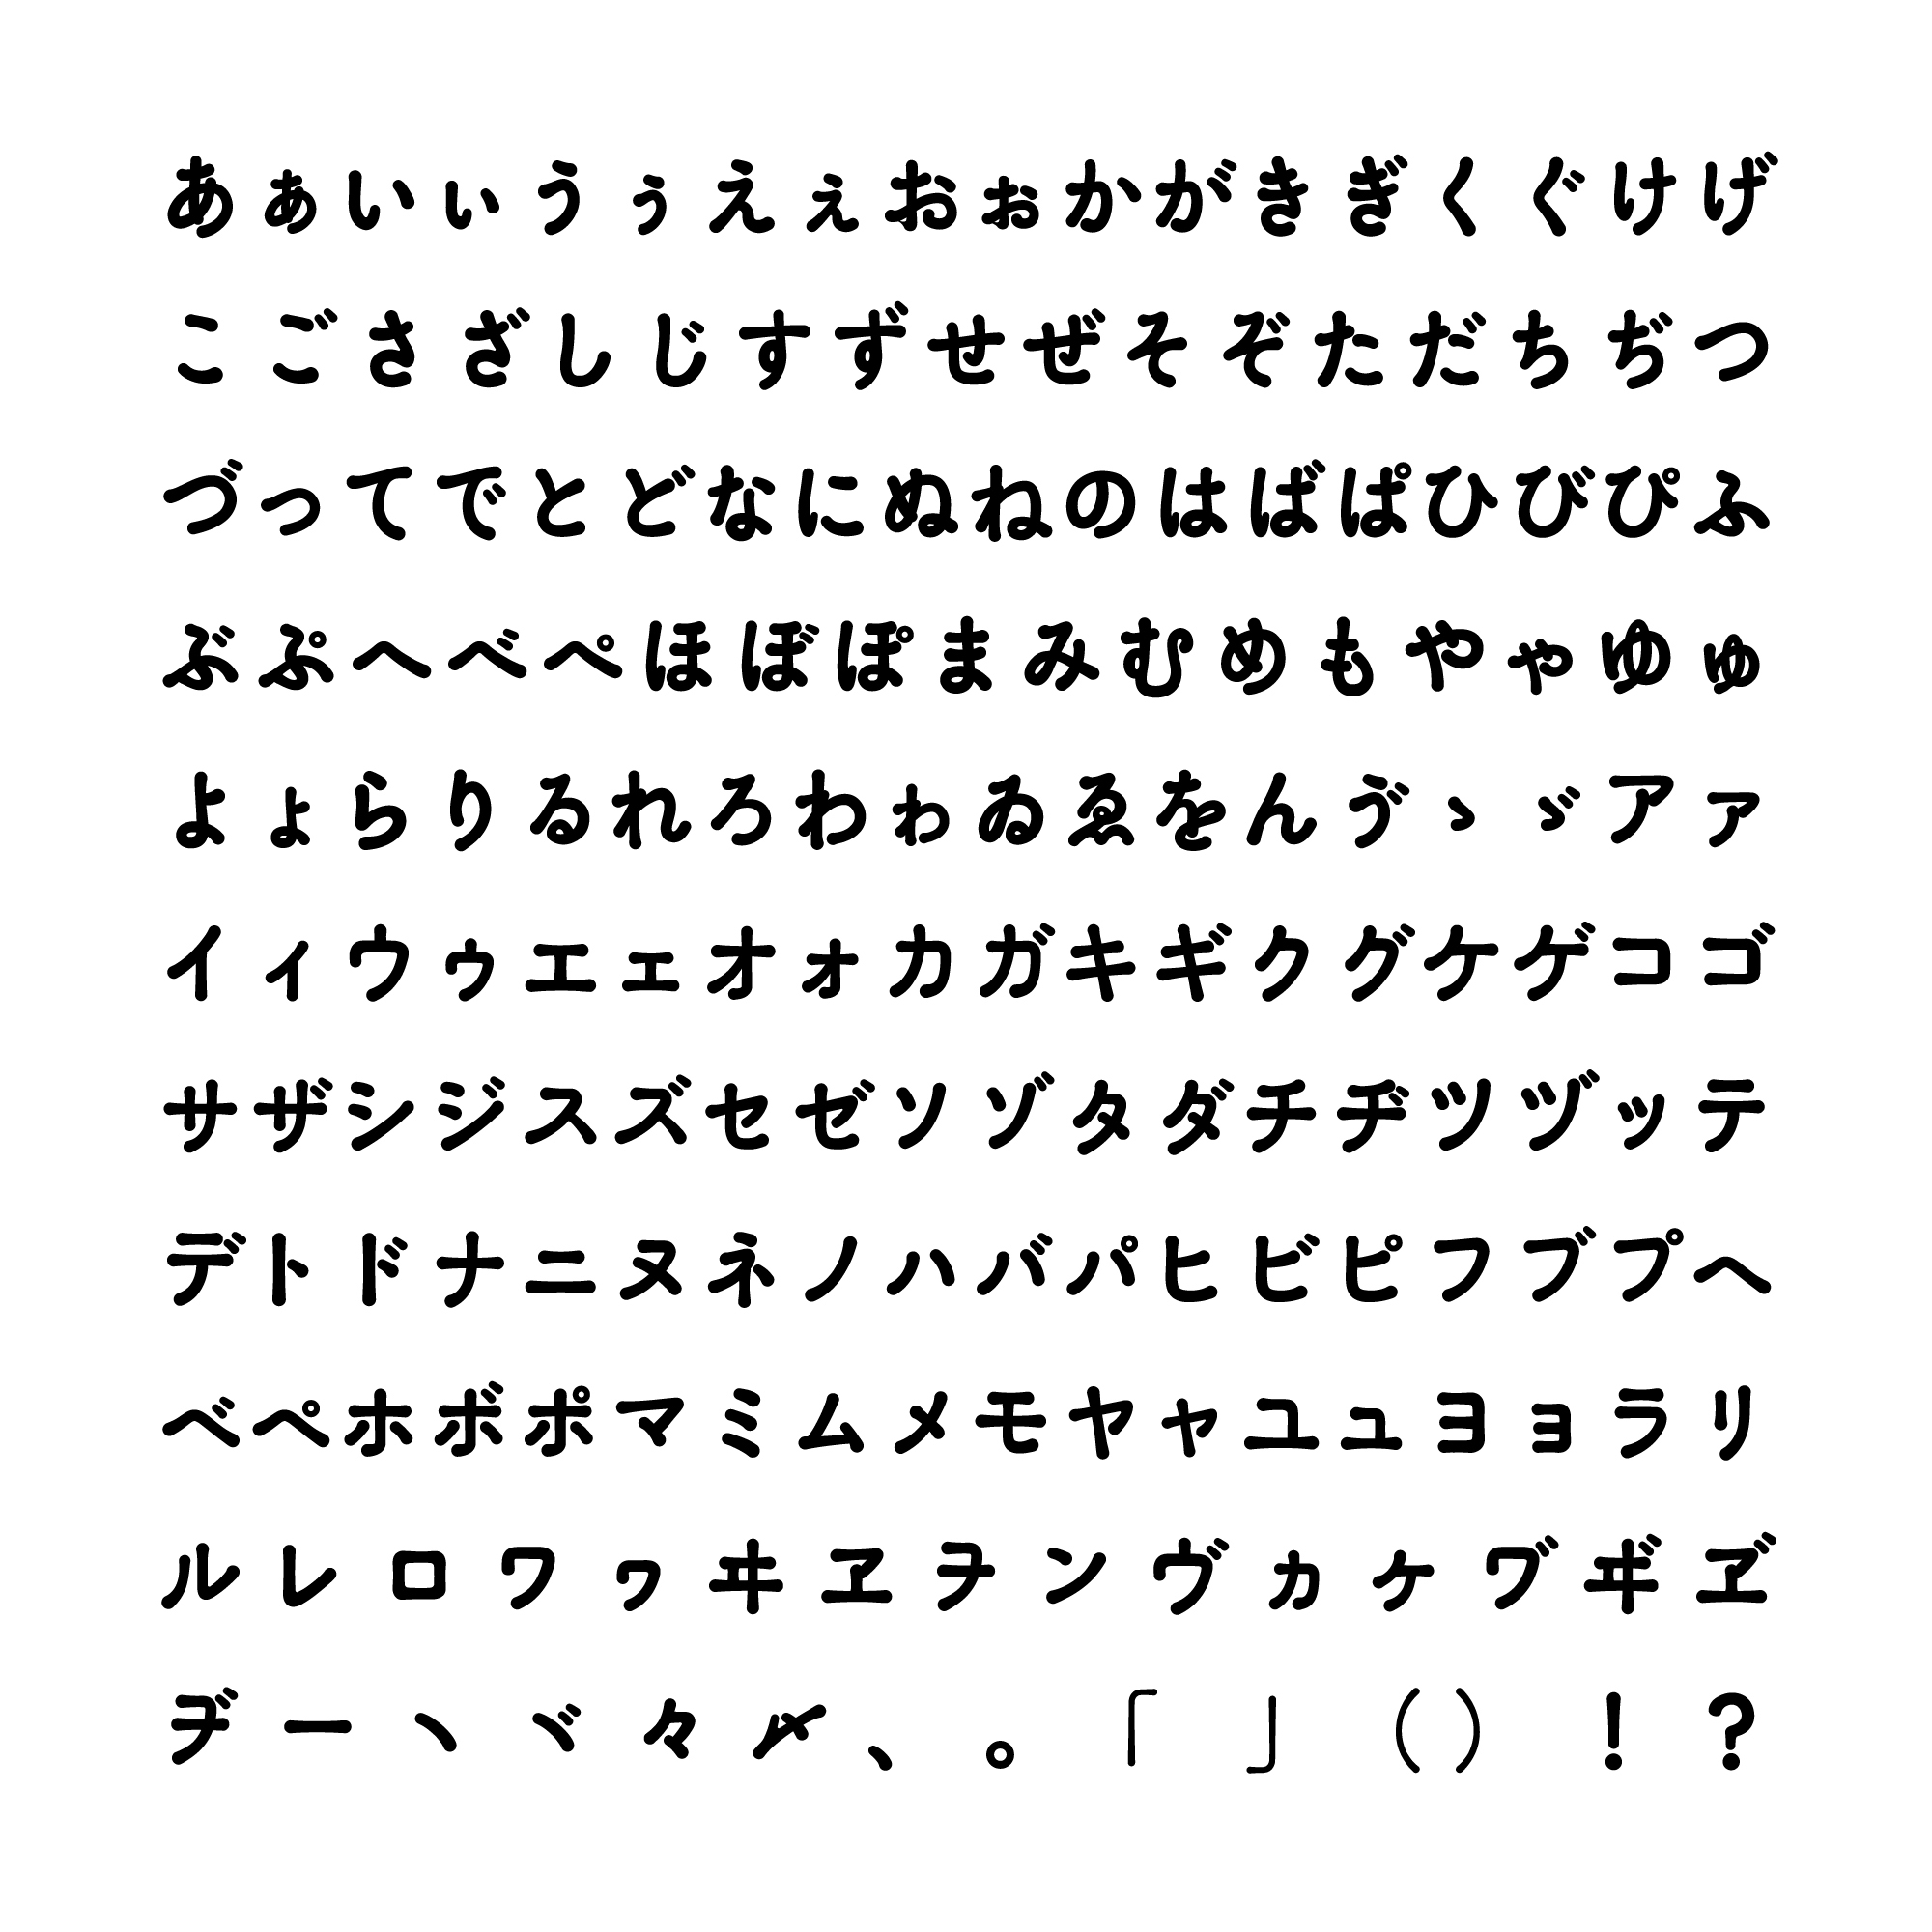 あぁいぃうぅえぇおぉかがきぎくぐけげ
こごさざしじすずせぜそぞただちぢつ
づってでとどなにぬねのはばぱひびぴふ
ぶぷへべぺほぼぽまみむめもやゃゆゅ
よょらりるれろわゎゐゑをんゔゝゞアァ
イィウゥエェオォカガキギクグケゲコゴ
サザシジスズセゼソゾタダチヂツヅッテ
デトドナニヌネノハバパヒビピフブプヘ
ベペホボポマミムメモヤャユュヨョラリ
ルレロワヮヰヱヲンヴヵヶヷヸヹ
ヺーヽヾ々〆、。「」()!?